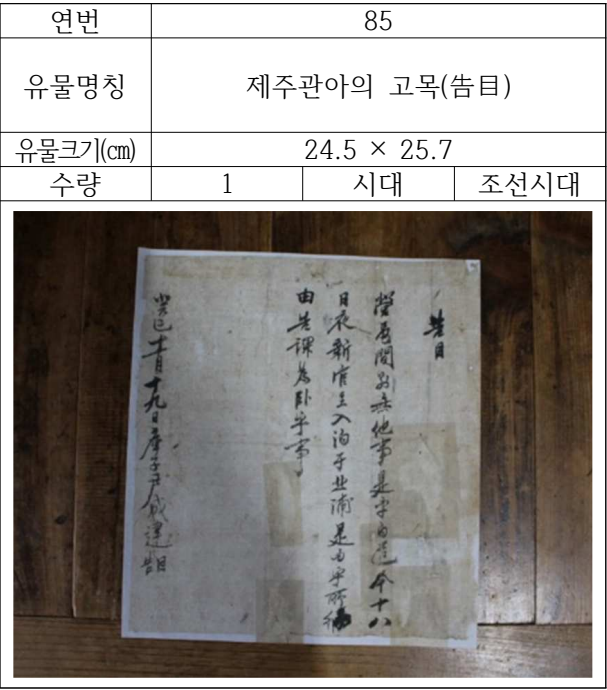 연번 85
유물명칭 제주관아의 고목(告目)
유물크기(㎝) 24.5 × 25.7
수량 1 시대 조선시대
告目
營展間別無他事是乎內這今十八
日夜新官主入泊于北浦是乎所
由告課爲臥乎事
癸巳十一月十九日座子尹成運告目